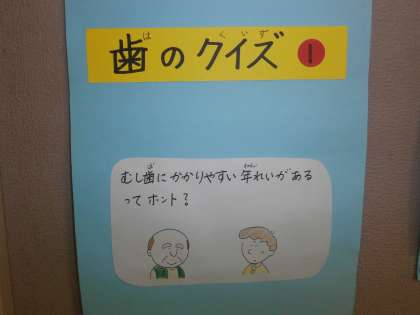 歯のクイズ!
むし歯にかかりやすい年れいがある
ってホント?